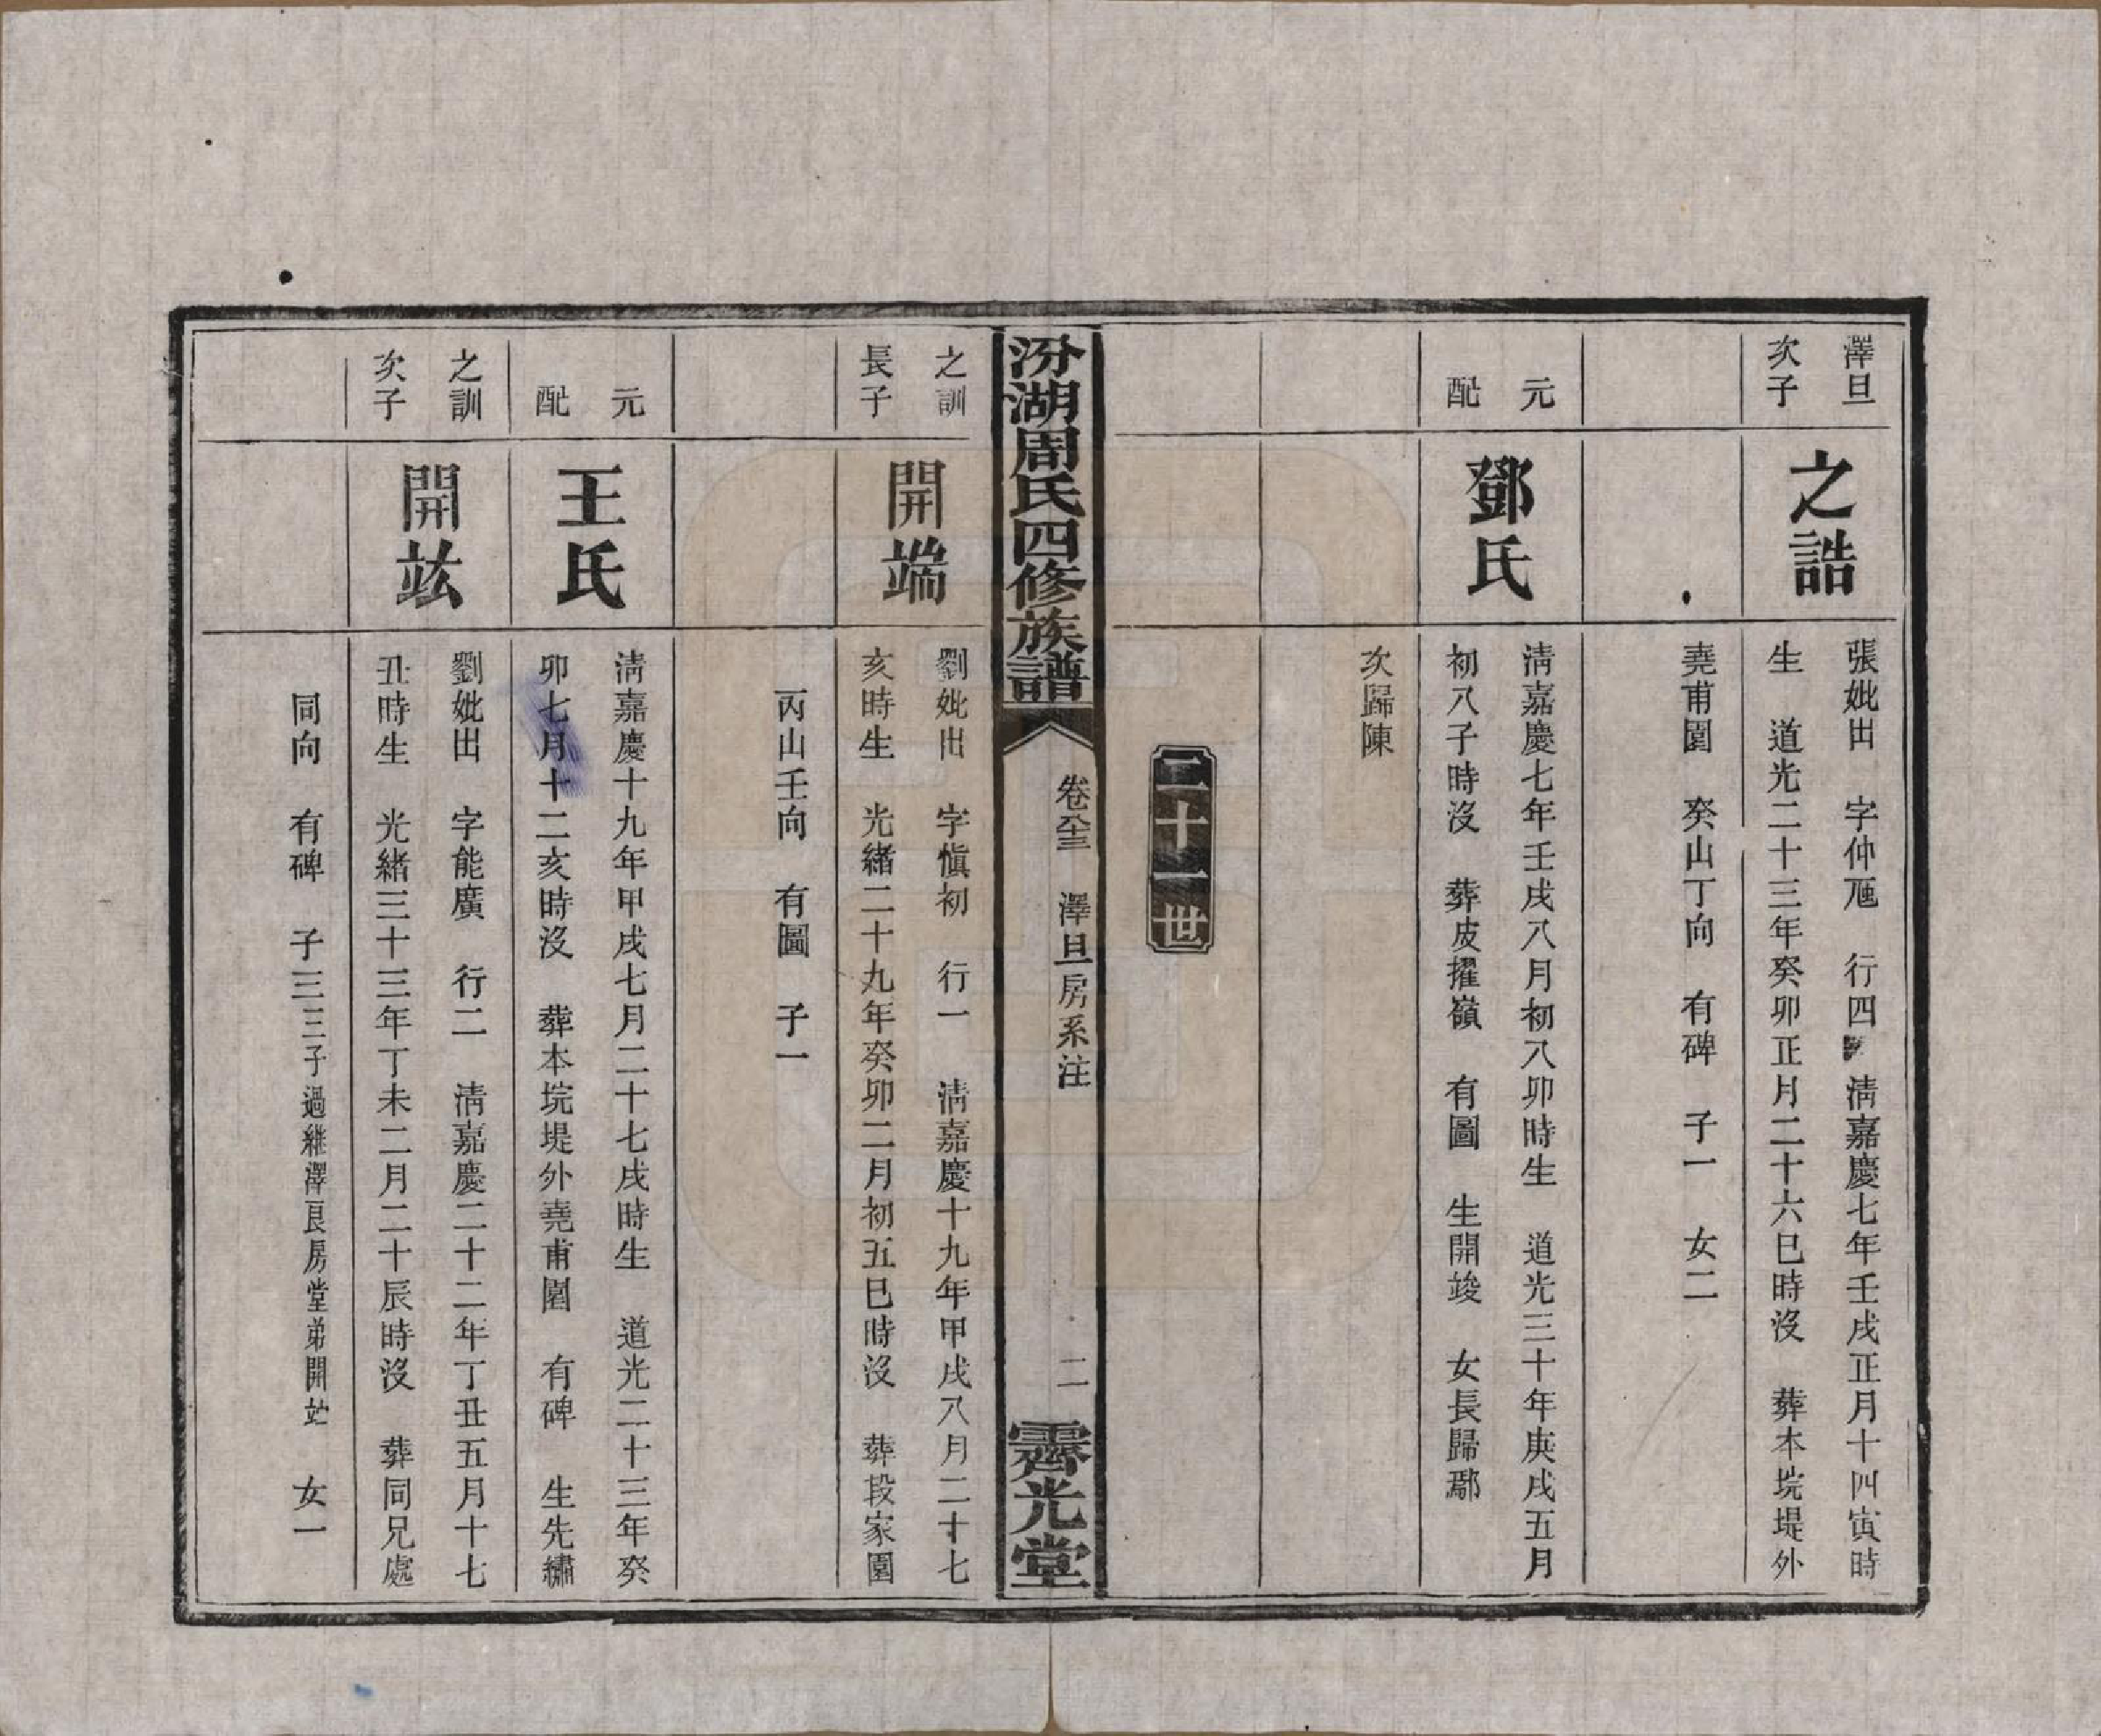 澤旦
次子
之誥
張妣出　字仲　行四　清嘉慶七年壬戌正月十四寅時
生　道光二十三年癸卯正月二十六巳時沒　葬本垸堤外
堯甫園　癸山丁向　有碑　子一　女二
元
配
鄧氏
清嘉慶七年壬戌八月初八卯時生　道光三十年庚戌五月
初八子時沒　葬皮擢嶺　有圖　生開竣　女長歸鄢
次歸陳
二十一世
汾湖周氏四修族譜
卷六十三　澤旦房系注　二
霽光堂
之訓
長子
開端
劉妣出　字愼初　行一　清嘉慶十九年甲戌八月二十七
亥時生　光緒二十九年癸卯二月初五巳時沒　葬段家園
丙山壬向　有圖　子一
元
配
王氏
清嘉慶十九年甲戌七月二十七戌時生　道光二十三年癸
卯七月十二亥時沒　葬本垸堤外堯甫園　有碑　生先繡
之訓
次子
開竑
劉妣出　字能廣　行二　清嘉慶二十二年丁丑五月十七
丑時生　光緒三十三年丁未二月二十辰時沒　葬同兄處
同向　有碑　子三三子過継澤良房堂弟開竐　女一